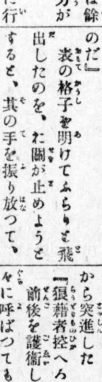 は餘
方が
に行
のだ』
表の格子を明けてふらりと飛
出したのを、お關が止めようと
すると、其の手を振り放つて、
から突進した
『狼藉者控へろ
前後を護衞し
々に呼ばつても